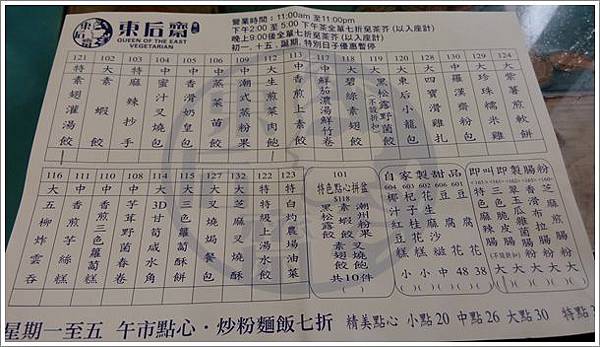 東后齋
QUEEN OF THE EAST
VEGETARIAN
營業時間：11:00am 至11:00pm
下午2:00 至 5:00 下午茶全單七折至茶芥 (以入座計)
晚上9:00後全單七折至茶芥 (以入座計)
初一, 十五, 誕期, 特別日子優惠暫停
121 特 素翅灌湯餃
102 大 素蝦餃
103 特 麻辣抄手
104 中 蜜汁叉燒包
105 中 香滑奶皇包
106 中 蒸菜苗餃
109 中 潮式蒸粉果
112 大 生煎菜肉飽
113 中 香煎上素餃
117 中 鮮茄濃湯鮮竹卷
118 大 碧綠素翅餃
119 大 黑松露野菌餃 (不設折扣)
120 大 東后小龍包
124 中 四寶滑雞扎
130 中 羅漢齋粉包
129 大 珍珠糯米雞
128 大 紫薯煎軟餅
116 大 五柳炸雲吞
111 中 香煎芋絲糕
110 中 香煎三色蘿蔔糕
108 中 芋茸野菌春卷
114 大 3D甘筍咸水角
115 大 三色蘿蔔酥餅
127 大 叉燒焗餐包
132 大 芝麻叉燒酥
122 特 特級上湯水餃
123 特 白灼農場油菜
101
特色點心拼盆
$118
黑松露餃
素蝦餃
素翅餃
潮州粉果
叉燒飽
共10件
自家製甜品
604 椰汁紅豆糕 小
602 杞子紅花糕 小
601 生磨 中
603 豆腐花 48
603 豆腐花 38
即叫即製腸粉
特色麻辣腸 (不設折扣) 大
三色脆皮腸 大
翠玉瓜雜菌腸 大
香滑布拉腸 大
芝麻煎腸粉 大
星期一至五 午市點心·炒粉麵飯七折 精美點心 小點 20 中點 26 大點 30 特點